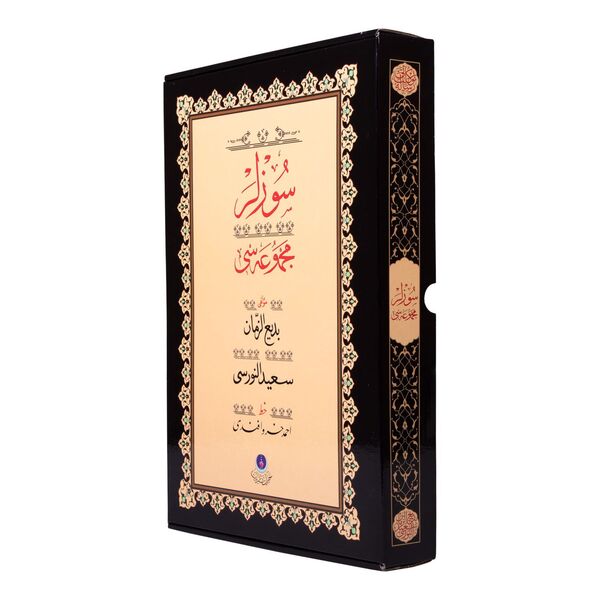 سوزلر
مجموعه‌سی
مؤلفی
بديع الزمان
سعيد النورسى
خط
احمد خسرو افندى
سوزلر
مجموعه‌سی